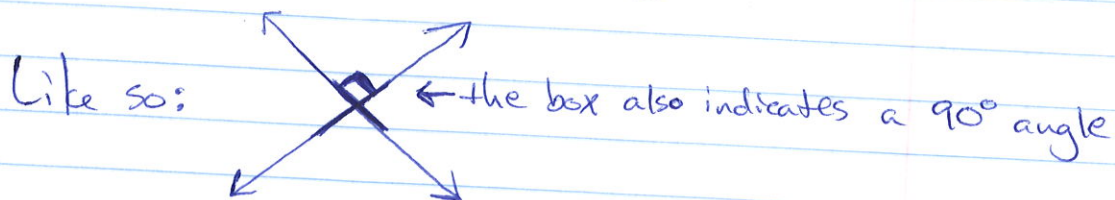 Like so: ← the box also indicates a 90° angle